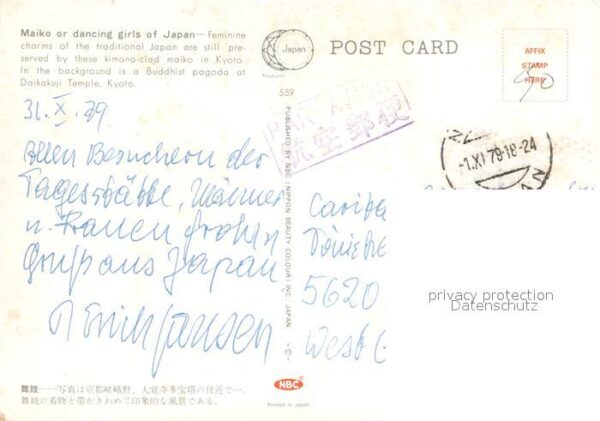 Maiko or dancing girls of Japan—Feminine
charms of the traditional Japan are still pre-
served by these kimono-clad maiko in Kyoto.
In the background is a Buddhist pagoda at
Daikakuji Temple, Kyoto.
Japan
POST CARD
AFFIX
STAMP
HERE
559
PAR AVION
航空郵便
-1.XI 79-18-24
31.X.79
Allen Besuchern der
Tagesstätte, Männer
u. Frauen frohen
Gruß aus Japan
Jansen
PUBLISHED BY NBC (NIPPON BEAUTY COLOUR) INC. JAPAN
Carita
5620
West
privacy protection
Datenschutz
舞妓——写真は京都嵯峨野、大覚寺多宝塔の付近で…。
舞妓の着物と帯がきわめて印象的な風景である。
NBC
Printed in Japan